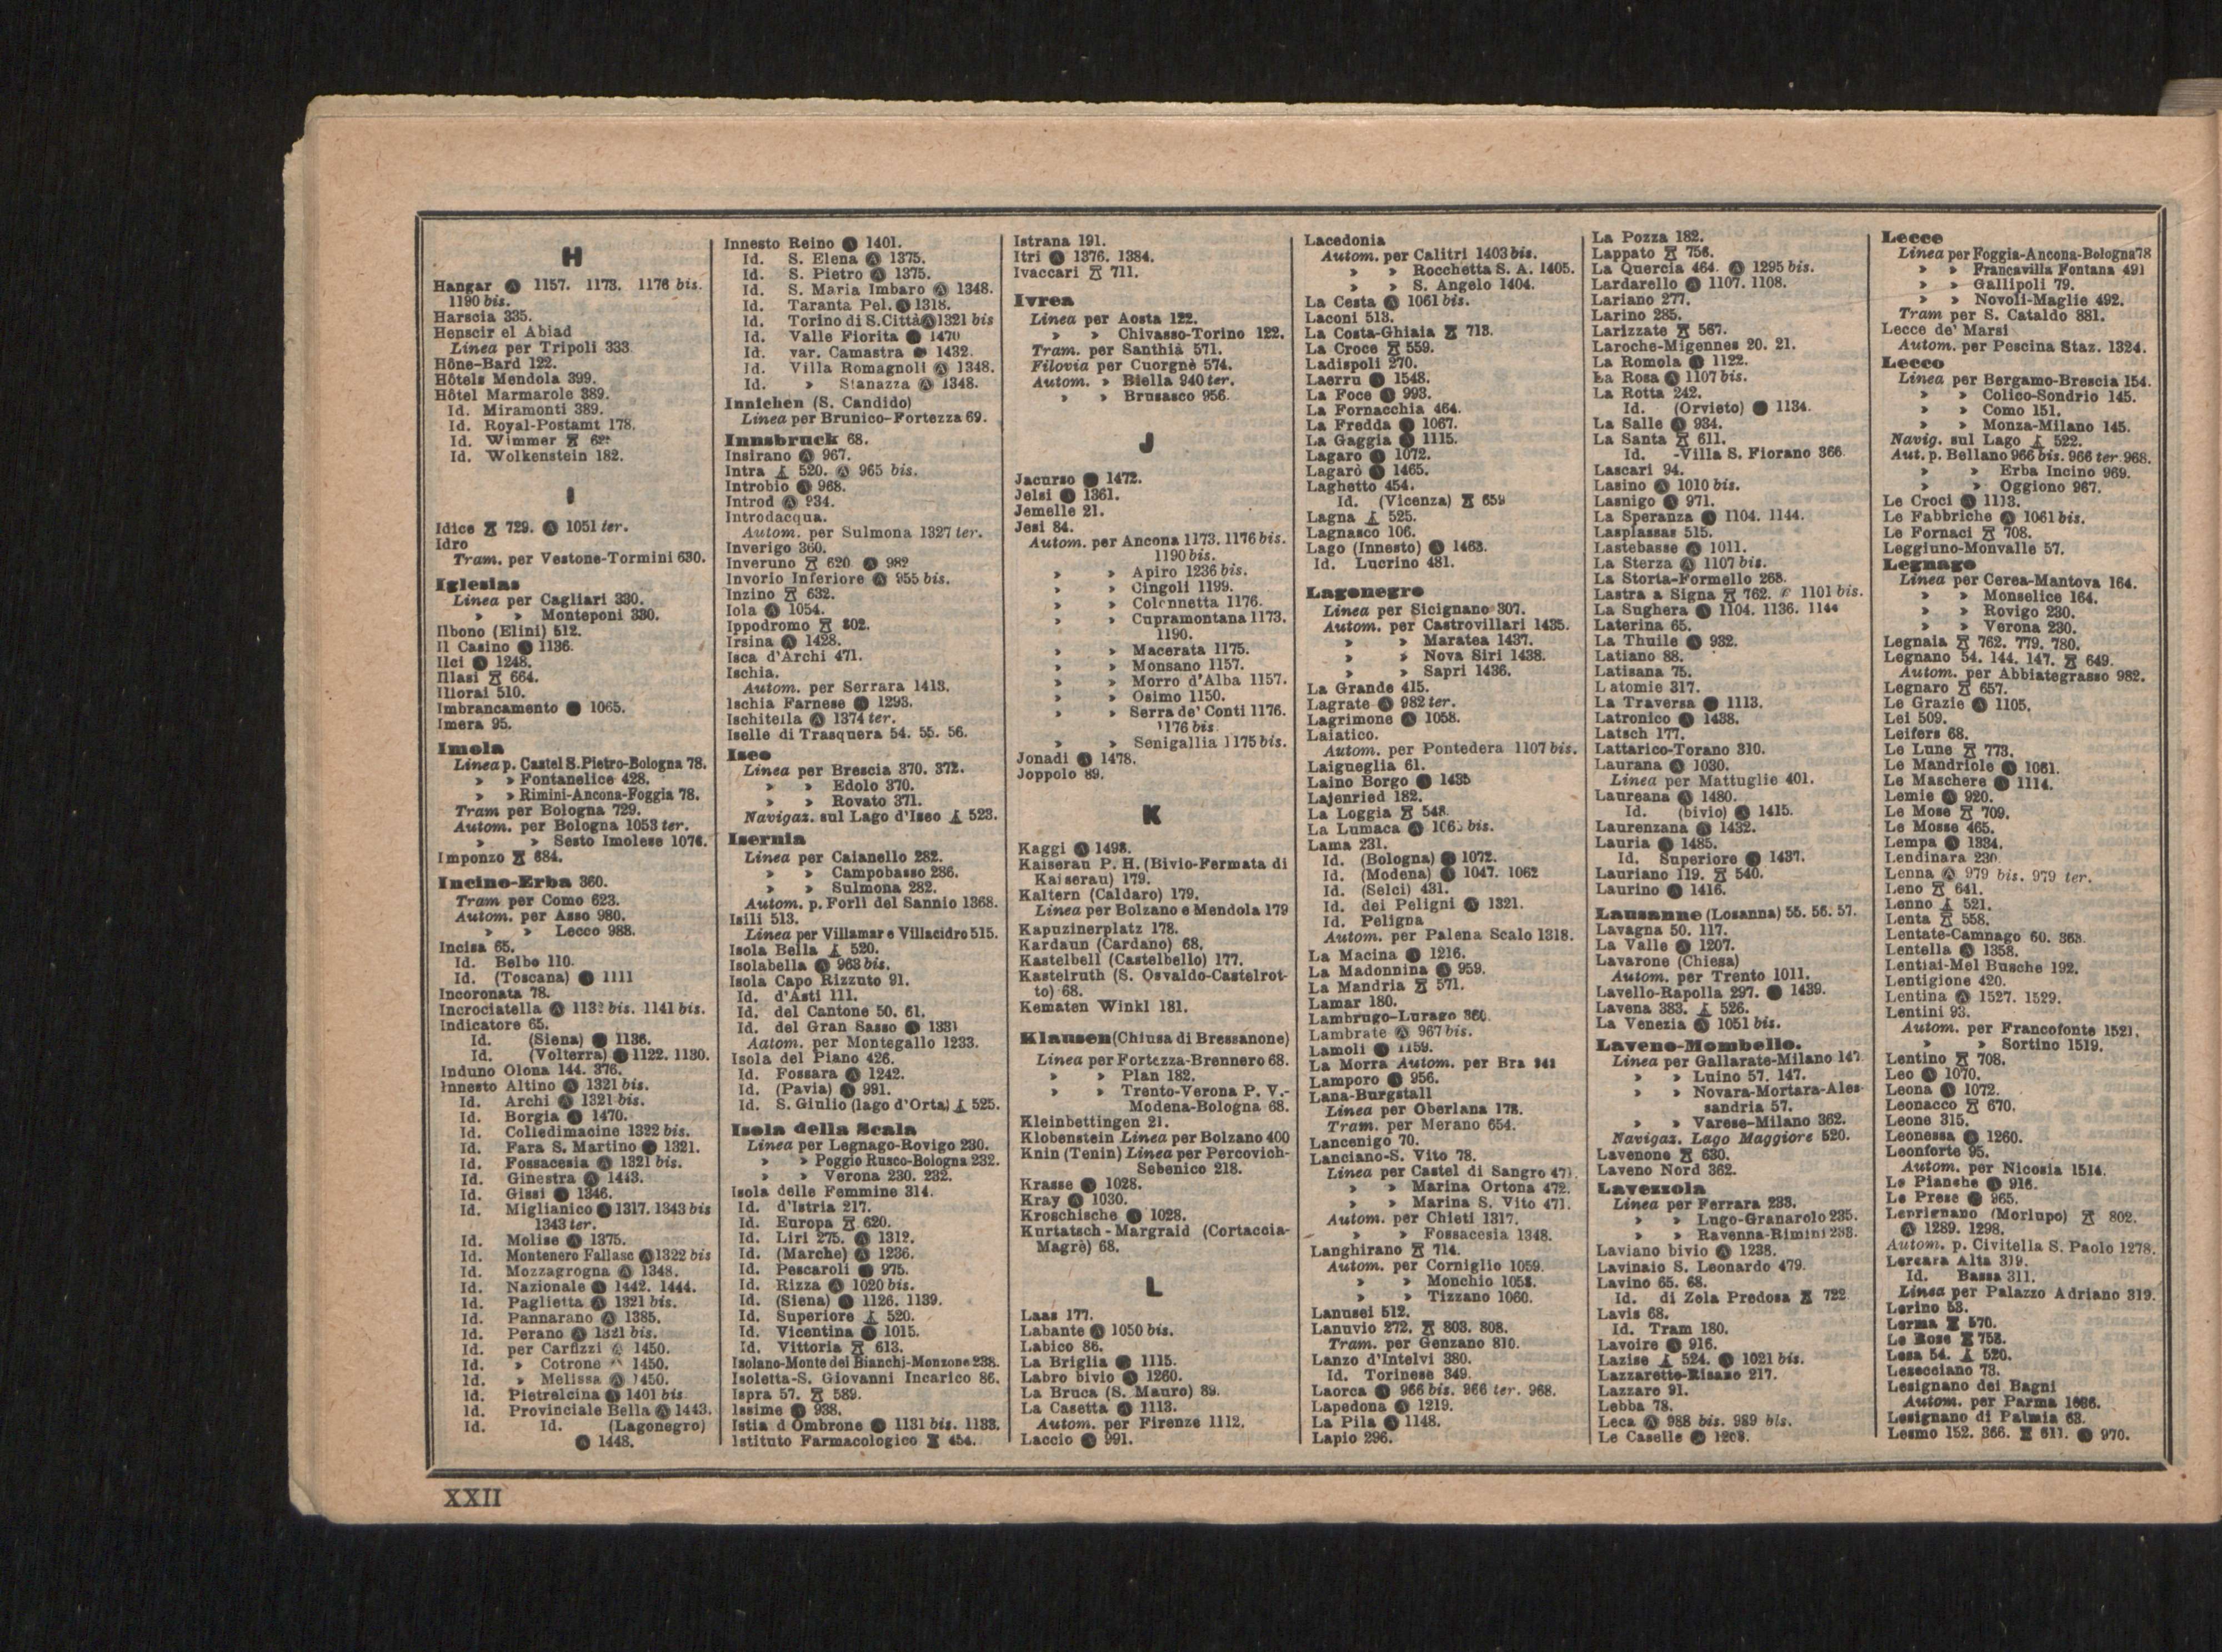 H
Hangar Ⓐ 1157. 1173. 1176 bis.
1190 bis.
Harscia 335.
Henscir el Abiad
Linea per Tripoli 333
Hône-Bard 122.
Hôtels Mendola 399.
Hôtel Marmarole 389.
Id. Miramonti 389.
Id. Royal-Postamt 178.
Id. Wimmer
Id. Wolkenstein 182.
I
Idice 729. Ⓐ 1051 ter.
Idro
Tram. per Vestone-Tormini 630.
Iglesias
Linea per Cagliari 330.
» » Monteponi 330.
Ilbono (Elini) 512.
Il Casino Ⓐ 1136.
Ilci Ⓐ 1248.
Illasi 664.
Illorai 510.
Imbrancamento Ⓐ 1065.
Imera 95.
Imola
Linea p. Castel S.Pietro-Bologna 78.
» » Fontanelice 428.
» » Rimini-Ancona-Foggia 78.
Tram per Bologna 729.
Autom. per Bologna 1053 ter.
» » Sesto Imolese 1076.
Imponzo 684.
Incino-Erba 360.
Tram per Como 623.
Autom. per Asso 980.
» » Lecco 988.
Incisa 65.
Id. Belbo 110.
Id. (Toscana) Ⓐ 1111
Incoronata 78.
Incrociatella Ⓐ bis. 1141 bis.
Indicatore 65.
Id. (Siena) Ⓐ 1136.
Id. (Volterra) Ⓐ 1122. 1130.
Induno Olona 144. 376.
Innesto Altino Ⓐ 1321 bis.
Id. Archi Ⓐ 1321 bis.
Id. Borgia Ⓐ 1470.
Id. Colledimacine 1322 bis.
Id. Fara S. Martino Ⓐ 1321.
Id. Fossacesia Ⓐ 1321 bis.
Id. Ginestra Ⓐ 1443.
Id. Gissi Ⓐ 1346.
Id. Miglianico Ⓐ 1317. 1343 bis
1343 ter.
Id. Molise Ⓐ 1375.
Id. Montenero Fallasc Ⓐ 1322 bis
Id. Mozzagrogna Ⓐ 1348.
Id. Nazionale Ⓐ 1442. 1444.
Id. Paglietta Ⓐ 1321 bis.
Id. Pannarano Ⓐ 1385.
Id. Perano Ⓐ 1321 bis.
Id. per Carfizzi Ⓐ 1450.
Id. » Cotrone Ⓐ 1450.
Id. » Melissa Ⓐ 1450.
Id. Pietrelcina Ⓐ 1401 bis
Id. Provinciale Bella Ⓐ 1443.
Id. Id. (Lagonegro)
Ⓐ 1448.
Innesto Reino Ⓐ 1401.
Id. S. Elena Ⓐ 1375.
Id. S. Pietro Ⓐ 1375.
Id. S. Maria Imbaro Ⓐ 1348.
Id. Taranta Pel. Ⓐ 1318.
Id. Torino di S.Città Ⓐ 1321 bis
Id. Valle Fiorita Ⓐ 1470
Id. var. Camastra Ⓐ 1432.
Id. Villa Romagnoli Ⓐ 1348.
Id. » Stanazza Ⓐ 1348.
Innichen (S. Candido)
Linea per Brunico-Fortezza 69.
Innsbruck 68.
Insirano Ⓐ 967.
Intra 520. Ⓐ 965 bis.
Introbio Ⓐ 968.
Introd Ⓐ 934.
Introdacqua.
Autom. per Sulmona 1327 ter.
Inverigo 360.
Inveruno 620 Ⓐ 982
Invorio Inferiore Ⓐ 955 bis.
Inzino 632.
Iola Ⓐ 1054.
Ippodromo 802.
Irsina Ⓐ 1428.
Isca d'Archi 471.
Ischia.
Autom. per Serrara 1413.
Ischia Farnese Ⓐ 1293.
Ischitella Ⓐ 1374 ter.
Iselle di Trasquera 54. 55. 56.
Iseo
Linea per Brescia 370. 372.
» » Edolo 370.
» » Rovato 371.
Navigaz. sul Lago d'Iseo 523.
Isernia
Linea per Caianello 282.
» » Campobasso 286.
» » Sulmona 282.
Autom. p. Forlì del Sannio 1368.
Isili 513.
Linea per Villamar e Villacidro 515.
Isola Bella 520.
Isolabella Ⓐ 963 bis.
Isola Capo Rizzuto 91.
Id. d'Asti 111.
Id. del Cantone 50. 61.
Id. del Gran Sasso Ⓐ 1331
Aatom. per Montegallo 1233.
Isola del Piano 426.
Id. Fossara Ⓐ 1242.
Id. (Pavia) Ⓐ 991.
Id. S. Giulio (lago d'Orta) 525.
Isola della Scala
Linea per Legnago-Rovigo 230.
» » Poggio Rusco-Bologna 232.
» » Verona 230. 232.
Isola delle Femmine 314.
Id. d'Istria 217.
Id. Europa 620.
Id. Liri 275. Ⓐ 1312.
Id. (Marche) Ⓐ 1236.
Id. Pescaroli Ⓐ 975.
Id. Rizza Ⓐ 1020 bis.
Id. (Siena) Ⓐ 1126. 1139.
Id. Superiore 520.
Id. Vicentina Ⓐ 1015.
Id. Vittoria 613.
Isolano-Monte dei Bianchi-Monzone 238.
Isoletta-S. Giovanni Incarico 86.
Ispra 57. 589.
Issime Ⓐ 938.
Istia d Ombrone Ⓐ 1131 bis. 1133.
Istituto Farmacologico 454.
Istrana 191.
Itri Ⓐ 1376. 1384.
Ivaccari 711.
Ivrea
Linea per Aosta 122.
» » Chivasso-Torino 122.
Tram. per Santhià 571.
Filovia per Cuorgnè 574.
Autom. » Biella 940 ter.
» » Brusasco 956.
J
Jacurso Ⓐ 1472.
Jelsi Ⓐ 1361.
Jemelle 21.
Jesi 84.
Autom. per Ancona 1173. 1176 bis.
1190 bis.
» » Apiro 1236 bis.
» » Cingoli 1199.
» » Colonnetta 1176.
» » Cupramontana 1173.
1190.
» » Macerata 1175.
» » Monsano 1157.
» » Morro d'Alba 1157.
» » Osimo 1150.
» » Serra de' Conti 1176.
1176 bis
» » Senigallia 1175 bis.
Jonadi Ⓐ 1478.
Joppolo 89.
K
Kaggi Ⓐ 1498.
Kaiserau P. H. (Bivio-Fermata di
Kaiserau) 179.
Kaltern (Caldaro) 179.
Linea per Bolzano e Mendola 179
Kapuzinerplatz 178.
Kardaun (Cardano) 68.
Kastelbell (Castelbello) 177.
Kastelruth (S. Osvaldo-Castelrot-
to) 68.
Kematen Winkl 181.
Klausen (Chiusa di Bressanone)
Linea per Fortezza-Brennero 68.
» » Plan 182.
» » Trento-Verona P. V.-
Modena-Bologna 68.
Kleinbettingen 21.
Klobenstein Linea per Bolzano 400
Knin (Tenin) Linea per Percovich-
Sebenico 218.
Krasse Ⓐ 1028.
Kray Ⓐ 1030.
Kroschische Ⓐ 1028.
Kurtatsch - Margraid (Cortaccia-
Magrè) 68.
L
Laas 177.
Labante Ⓐ 1050 bis.
Labico 86.
La Briglia Ⓐ 1115.
Labro bivio Ⓐ 1260.
La Bruca (S. Mauro) 89.
La Casetta Ⓐ 1113.
Autom. per Firenze 1112.
Laccio Ⓐ 991.
Lacedonia
Autom. per Calitri 1403 bis.
» » Rocchetta S. A. 1405.
» » S. Angelo 1404.
La Cesta Ⓐ 1061 bis.
Laconi 513.
La Costa-Ghiaia 713.
La Croce 559.
Ladispoli 270.
Laerru Ⓐ 1548.
La Foce Ⓐ 993.
La Fornacchia 464.
La Fredda Ⓐ 1067.
La Gaggia Ⓐ 1115.
Lagaro Ⓐ 1072.
Lagarò Ⓐ 1465.
Laghetto 454.
Id. (Vicenza) 659
Lagna 525.
Lagnasco 106.
Lago (Innesto) Ⓐ 1463.
Id. Lucrino 481.
Lagonegro
Linea per Sicignano 307.
Autom. per Castrovillari 1435.
» » Maratea 1437.
» » Nova Siri 1438.
» » Sapri 1436.
La Grande 415.
Lagrate Ⓐ 982 ter.
Lagrimone Ⓐ 1058.
Laiatico.
Autom. per Pontedera 1107 bis.
Laigueglia 61.
Laino Borgo Ⓐ 1435
Lajenried 182.
La Loggia 548.
La Lumaca Ⓐ bis.
Lama 231.
Id. (Bologna) Ⓐ 1072.
Id. (Modena) Ⓐ 1047. 1062
Id. (Selci) 431.
Id. dei Peligni Ⓐ 1321.
Id. Peligna
Autom. per Palena Scalo 1318.
La Macina Ⓐ 1216.
La Madonnina Ⓐ 959.
La Mandria 571.
Lamar 180.
Lambrugo-Lurago 360
Lambrate Ⓐ 967 bis.
Lamoli Ⓐ 1159.
La Morra Autom. per Bra
Lamporo Ⓐ 956.
Lana-Burgstall
Linea per Oberlana 178.
Tram. per Merano 654.
Lancenigo 70.
Lanciano-S. Vito 78.
Linea per Castel di Sangro 471.
» » Marina Ortona 472.
» » Marina S. Vito 471.
Autom. per Chieti 1317.
» » Fossacesia 1348.
Langhirano 714.
Autom. per Corniglio 1059.
» » Monchio 1058.
» » Tizzano 1060.
Lanusei 512.
Lanuvio 272. 803. 808.
Tram. per Genzano 810.
Lanzo d'Intelvi 380.
Id. Torinese 349.
Laorca Ⓐ 966 bis. 966 ter. 968.
Lapedona Ⓐ 1219.
La Pila Ⓐ 1148.
Lapio 296.
La Pozza 182.
Lappato 756.
La Quercia 464. Ⓐ 1295 bis.
Lardarello Ⓐ 1107. 1108.
Lariano 277.
Larino 285.
Larizzate 567.
Laroche-Migennes 20. 21.
La Romola Ⓐ 1122.
La Rosa Ⓐ 1107 bis.
La Rotta 242.
Id. (Orvieto) Ⓐ 1134.
La Salle Ⓐ 934.
La Santa 611.
Id. -Villa S. Fiorano 366
Lascari 94.
Lasino Ⓐ 1010 bis.
Lasnigo Ⓐ 971.
La Speranza Ⓐ 1104. 1144.
Lasplassas 515.
Lastebasse Ⓐ 1011.
La Sterza Ⓐ 1107 bis.
La Storta-Formello 268.
Lastra a Signa 762. Ⓐ 1101 bis.
La Sughera Ⓐ 1104. 1136. 1144
Laterina 65.
La Thuile Ⓐ 932.
Latiano 88.
Latisana 75.
Latomie 317.
La Traversa Ⓐ 1113.
Latronico Ⓐ 1438.
Latsch 177.
Lattarico-Torano 310.
Laurana Ⓐ 1030.
Linea per Mattuglie 401.
Laureana Ⓐ 1480.
Id. (bivio) Ⓐ 1415.
Laurenzana Ⓐ 1432.
Lauria Ⓐ 1485.
Id. Superiore Ⓐ 1437.
Lauriano 119. 540.
Laurino Ⓐ 1416.
Lausanne (Losanna) 55. 56. 57.
Lavagna 50. 117.
La Valle Ⓐ 1207.
Lavarone (Chiesa)
Autom. per Trento 1011.
Lavello-Rapolla 297. Ⓐ 1439.
Lavena 383. 526.
La Venezia Ⓐ 1051 bis.
Laveno-Mombello.
Linea per Gallarate-Milano 147
» » Luino 57. 147.
» » Novara-Mortara-Ales-
sandria 57.
» » Varese-Milano 362.
Navigaz. Lago Maggiore 520.
Lavenone 630.
Laveno Nord 362.
Lavezzola
Linea per Ferrara 233.
» » Lugo-Granarolo 235.
» » Ravenna-Rimini 233.
Laviano bivio Ⓐ 1238.
Lavinaio S. Leonardo 479.
Lavino 65. 68.
Id. di Zola Predosa 722
Lavis 68.
Id. Tram 180.
Lavoire Ⓐ 916.
Lazise 524. Ⓐ 1021 bis.
Lazzaretto-Risano 217.
Lazzaro 91.
Lebba 78.
Leca Ⓐ 988 bis. 989 bis.
Le Caselle Ⓐ 1208.
Lecce
Linea per Foggia-Ancona-Bologna 78
» » Francavilla Fontana 491
» » Gallipoli 79.
» » Novoli-Maglie 492.
Tram per S. Cataldo 881.
Lecce de' Marsi
Autom. per Pescina Staz. 1324.
Lecco
Linea per Bergamo-Brescia 154.
» » Colico-Sondrio 145.
» » Como 151.
» » Monza-Milano 145.
Navig. sul Lago 522.
Aut. p. Bellano 966 bis. 966 ter. 968.
» » Erba Incino 969.
» » Oggiono 967.
Le Croci Ⓐ 1113.
Le Fabbriche Ⓐ 1061 bis.
Le Fornaci 708.
Leggiuno-Monvalle 57.
Legnago
Linea per Cerea-Mantova 164.
» » Monselice 164.
» » Rovigo 230.
» » Verona 230.
Legnaia 762. 779. 780.
Legnano 54. 144. 147. 649.
Autom. per Abbiategrasso 982.
Legnaro 657.
Le Grazie Ⓐ 1105.
Lei 509.
Leifers 68.
Le Lune 773.
Le Mandriole Ⓐ 1061.
Le Maschere Ⓐ 1114.
Lemie Ⓐ 920.
Le Mose 709.
Le Mosse 465.
Lempa Ⓐ 1334.
Lendinara 230
Lenna Ⓐ 979 bis. 979 ter.
Leno 641.
Lenno 521.
Lenta 558.
Lentate-Camnago 60. 363
Lentella Ⓐ 1358.
Lentiai-Mel Busche 192.
Lentigione 420.
Lentina Ⓐ 1527. 1529.
Lentini 93.
Autom. per Francofonte 1521.
» » Sortino 1519.
Lentino 708.
Leo Ⓐ 1070.
Leona Ⓐ 1072.
Leonacco 670.
Leone 315.
Leonessa Ⓐ 1260.
Leonforte 95.
Autom. per Nicosia 1514.
Le Pianche Ⓐ 916.
Le Prese Ⓐ 965.
Leprignano (Morlupo) 802.
Ⓐ 1289. 1298.
Autom. p. Civitella S. Paolo 1278.
Lercara Alta 319.
Id. Bassa 311.
Linea per Palazzo Adriano 319.
Lerino 53.
Lerma 570.
Le Rose 758.
Lesa 54. 520.
Lesecciano 73.
Lesignano dei Bagni
Autom. per Parma 1066.
Lesignano di Palmia 63.
Lesmo 152. 366. 611. Ⓐ 970.
XXII